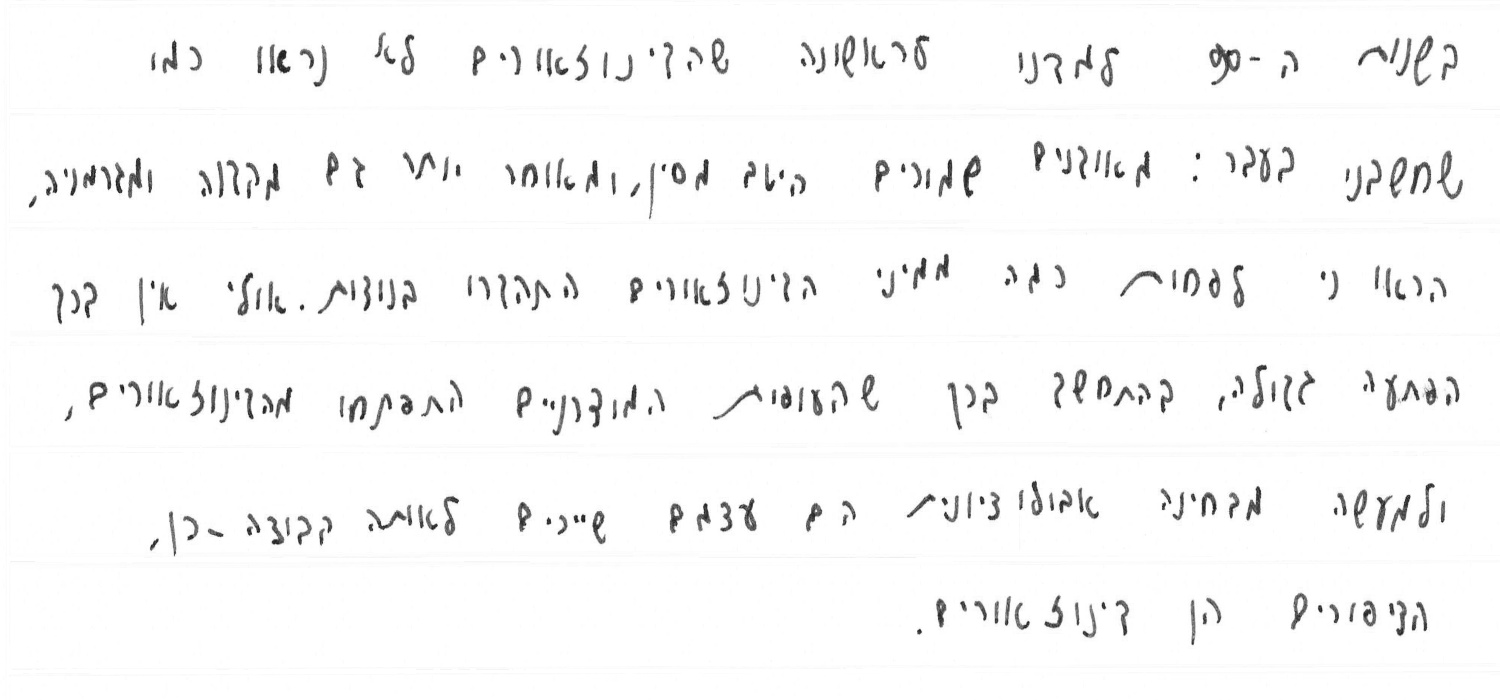 בשנות ה-90 למדנו לראשונה שהדינוזאורים לא נראו כמו
שחשבנו בעבר: מאובנים שמורים היטב מסין, ומאוחר יותר גם מקנדה ומגרמניה,
הראו כי לפחות כמה ממיני הדינוזאורים התהדרו בנוצות. אולי אין בכך
הפתעה גדולה, בהתחשב בכך שהעופות המודרניים התפתחו מהדינוזאורים,
ולמעשה מבחינה אבולוציונית הם עצמם שייכים לאותה קבוצה - כן,
הציפורים הן דינוזאורים.